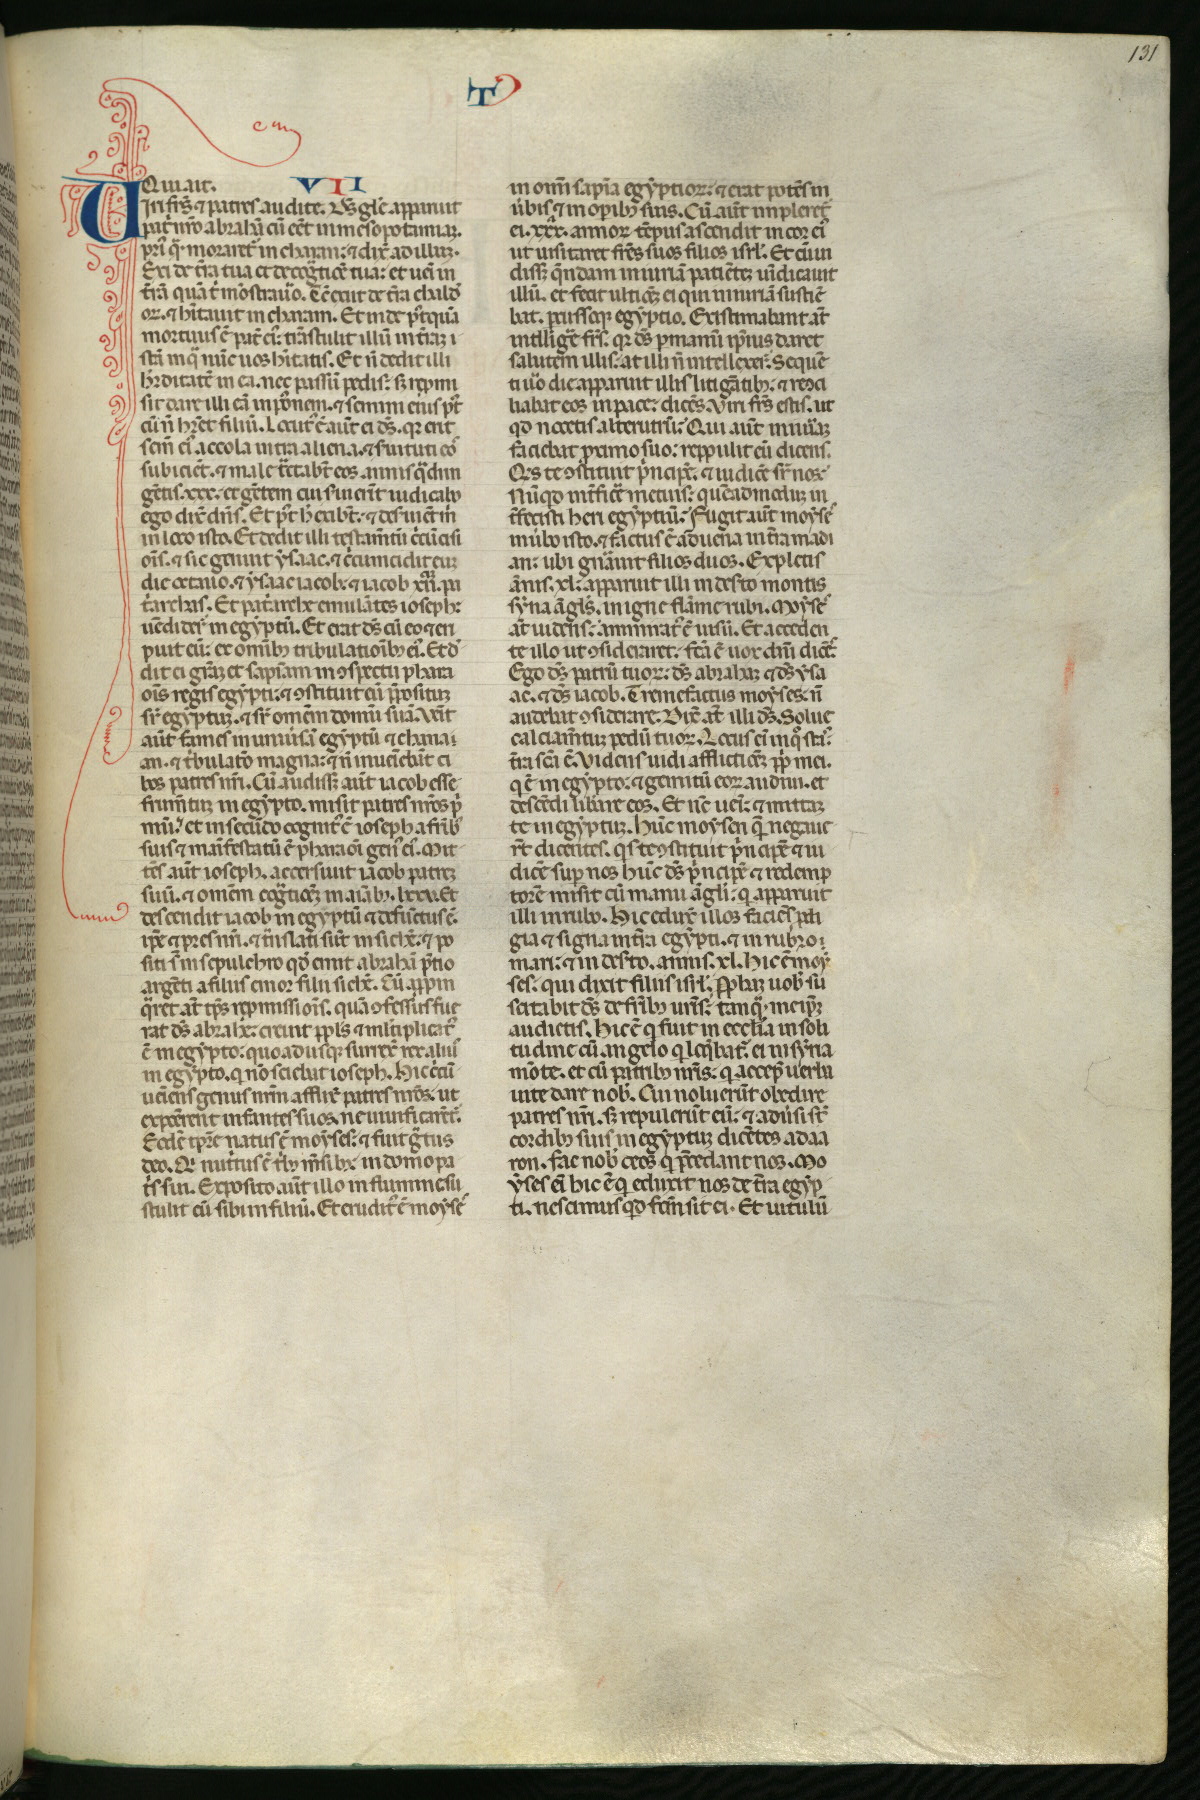 131
T
Qui ait. VII
Viri fr̄s ⁊ patres audite. D̄s gl̄e apparuit
patͥ nr̄o abrahā cū eēt in mesopotamia.
pͥusqͣ moraret̉ in charan: ⁊ dix̄ ad illū.
Exi de tr̄a tua et de cogͣtiōe tua: et ueni in
tr̄am quā tͥ mōstrauͦo. Tc̄ exiit de tr̄a chald̉
oꝝ. ⁊ hītauit in charam. Et inde pꝰtquā
mortuus ē pat̉ eiꝰ: trāstulit illū in tr̄aꝫ i
stā in qͣ nūc uos hītatis. Et n̄ dedit illi
h̉editatē in ea. nec passū pedis: sꝫ repͥmi
sit dare illi eā in poss̄onem. ⁊ semini eius pꝰt
cū n̄ hr̄et filiū. Locutꝰ ē aūt ei ds̄. qꝛ erit
sem̄ eiꝰ accola in tr̄a aliena. ⁊ s̉uituti eos
subiciēt. ⁊ male tͣctabt̄ eos. annis qͣdrin
gētis. xxx. et gētem cui s̉uierīt iudicabo
ego dix̄ dn̄s. Et pꝰt h̄ exibt̄: ⁊ des̉uiēt m̄
in loco isto. Et dedit illi testam̄tū cͥcūcisi
oīs. ⁊ sic genuit ysaac. ⁊ cͥcūcidit eū
die octauo. ⁊ ysaac iacob: ⁊ iacob xii. pa
tͥarchas. Et patͥarche emulātes ioseph:
uēdider̄t in egyptū. Et erat ds̄ cū eo ⁊ eri
puit eū: ex omībꝰ tribulatiōibꝰ eiꝰ. Et de
dit ei gr̄aꝫ et sapiam in ꝯspectu phara
ōis regis egypti: ⁊ ꝯstituit eū p̄positū
sr̄ egyptū. ⁊ sr̄ omēm domū suā. Venit
aūt fames in uniūsā egyptū ⁊ chana
an. ⁊ tͥbulatio magna: ⁊ n̄ inueniebāt ci
bos patres nr̄i. Cū audiss̄ aūt iacob esse
frum̄tū in egypto. misit patres nr̄os pͥ
mū: et in secūdo cognitꝰ ē ioseph a fr̄ibꝰ
suis ⁊ manifestatū ē pharaōi genꝰ eiꝰ. Mit
tēs aūt ioseph. accersiuit iacob patreꝫ
suū. ⁊ omēm cogͣtioeꝫ in aīabꝰ. lxxv. Et
descendit iacob in egyptū ⁊ defūctus ē.
ip̄e ⁊ pr̄es nr̄i. ⁊ tͣnslati sūt in sichē: ⁊ po
siti s̄t in sepulchro qd̉ emit abrahā p̄tio
argēti a filiis emor filii sichē. Cū app̄oin
qͣret aūt tp̄s repmissiōis. quā ꝯfessus fue
rat ds̄ abrahe: creuit ppl̄s ⁊ multiplicatꝰ
ē in egypto: quoadusqꝫ surrex̄ rex aliuꝰ
in egypto. q nō sciebat ioseph. Hic cͥcū
ueniens genus nr̄m afflix̄ patres nr̄os: ut
exponerent infantes suos. ne uiuificarēt̉.
Eodē tp̄re natus ē moyses: ⁊ fuit gͣtus
deo. Qͥ nutͥtus ē tͥbꝰ m̄sibꝫ in domo pa
tͥs sui. Exposito aūt illo in flumine su
stulit eū sibi in filiū. Et eruditꝰ ē moyses
in om̄i sapīa egyptioꝝ: ⁊ erat potēs in
ūbis ⁊ in opibꝰ suis. Cū aūt impleret̉
ei. xxxx. annoꝝ tēpus ascendit in cor eiꝰ
ut uisitaret fr̄es suos filios isrl̄. Et cū ui
diss̄ qͥndam iniuriā patiētē: uīdicauit
illū. et fecit ultiōeꝫ ei qui iniuriā sustie
bat. ꝑcussoqꝫ egyptio. Existimabant aūt
intelligͤe fr̄s. qꝛ ds̄ ꝑ manū ip̄ius daret
salutem illis: at illi n̄ intellexer̄. Sequē
ti ūo die apparuit illis litigātibꝫ: ⁊ recō
liabat eos in pace: dicēs. Viri fr̄s estis. ut
qd nocetis alterutrū: Qui aūt iniuͥaꝫ
faciebat proximo suo: reppulit eū dicens.
Qͥs te ꝯstituit pͥncipē: ⁊ iudicē sr̄ nos:
Nūqd int̄fic̄e me tuis: quēadmodum in
t̄fecisti heri egyptiū: Fugit aūt moyses
in ūbo isto. ⁊ factus ē aduena in tr̄a madi
an: ubi gn̄auit filios duos. Expletis
annis. xl: apparuit illi in des̉to montis
syna āgl̄s. in igne flāme rubi. Moyses
aūt uidens: ammiratꝰ ē uisū. Et acceden
te illo ut ꝯsideraret: fc̄a ē uox dn̄i dicēs.
Ego ds̄ patrū tuoꝝ: ds̄ abrahaꝫ ⁊ ds̄ ysa
ac. ⁊ ds̄ iacob. Tremefactus moyses: n̄
audebat ꝯsiderare. Dix̄ aūt illi ds̄. Solue
calciam̄tū pedū tuoꝝ. Locus ei in qͦ stas:
tr̄a sc̄a ē. Videns uidi afflictiōeꝫ ppl̄i mei.
qͥ ē in egypto: ⁊ gemitū eoꝝ audiui. et
descēdi lib̄are eos. Et nūc ueni: ⁊ mittaꝫ
te in egyptū. Hūc moysen quē negaue
rt̄ dicentes. qͥs te ꝯstituit pͥncipē ⁊ iu
dicē sup̄ nos hūc ds̄ pͥncipē ⁊ redemp
torē misit cū manu āgl̄i: q apparuit
illi in rubo. Hic eduxͥ illos faciēs pdi
gia ⁊ signa in tr̄a egypti. ⁊ in rubro
mari: ⁊ in des̉to. annis. xl. Hic ē moy
ses. qui dixit filiis isrl̄. Pphaꝫ uobꝫ su
scitabit ds̄ de fr̄ibꝰ ur̄is: tanqͣ meip̄ꝫ
audietis. Hic ē q fuit in ecclīa in soli
tudine cū angelo q loqͣbat̉ ei in syna
mōte. et cū patribꝰ nr̄is: q accepͥ uerba
uite dare nobꝫ. Cui noluerūt obedire
patres nr̄i. sꝫ repulerūt eū: ⁊ adūsi st̄
cordibꝰ suis in egyptū dicētes ad aa
ron. Fac nobꝫ deos q p̄cedant nos. Mo
yses ei hic ē q eduxit nos de tr̄a egyp
ti. nescimus qd fc̄m sit ei. Et uitulū